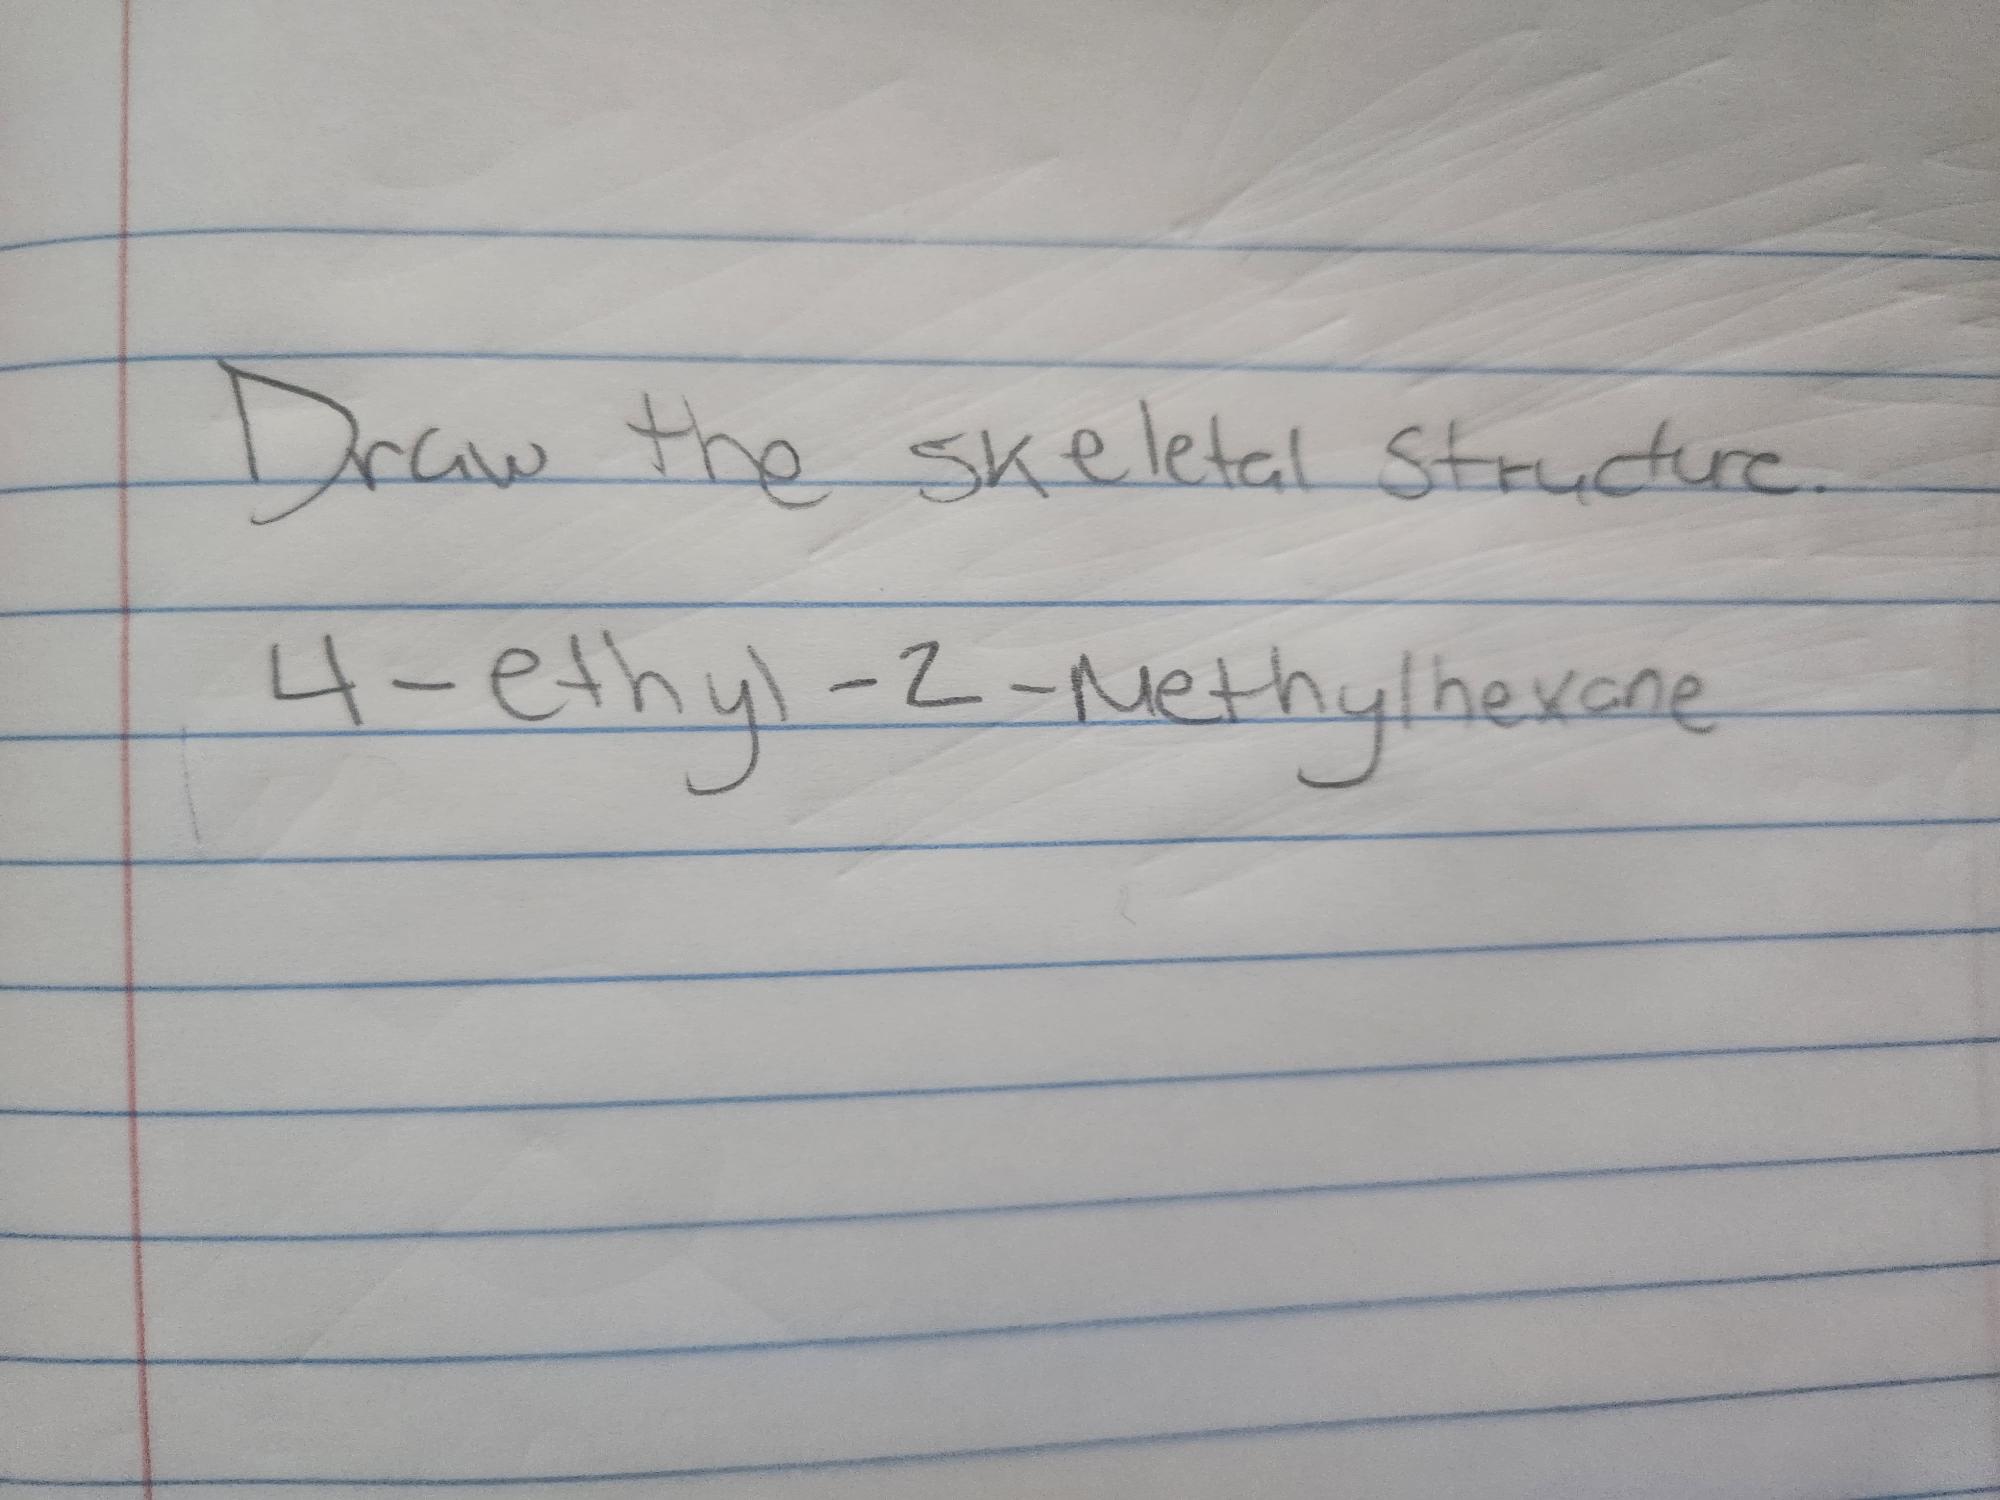 Draw the skeletal structure.
4-ethyl-2-Methylhexane